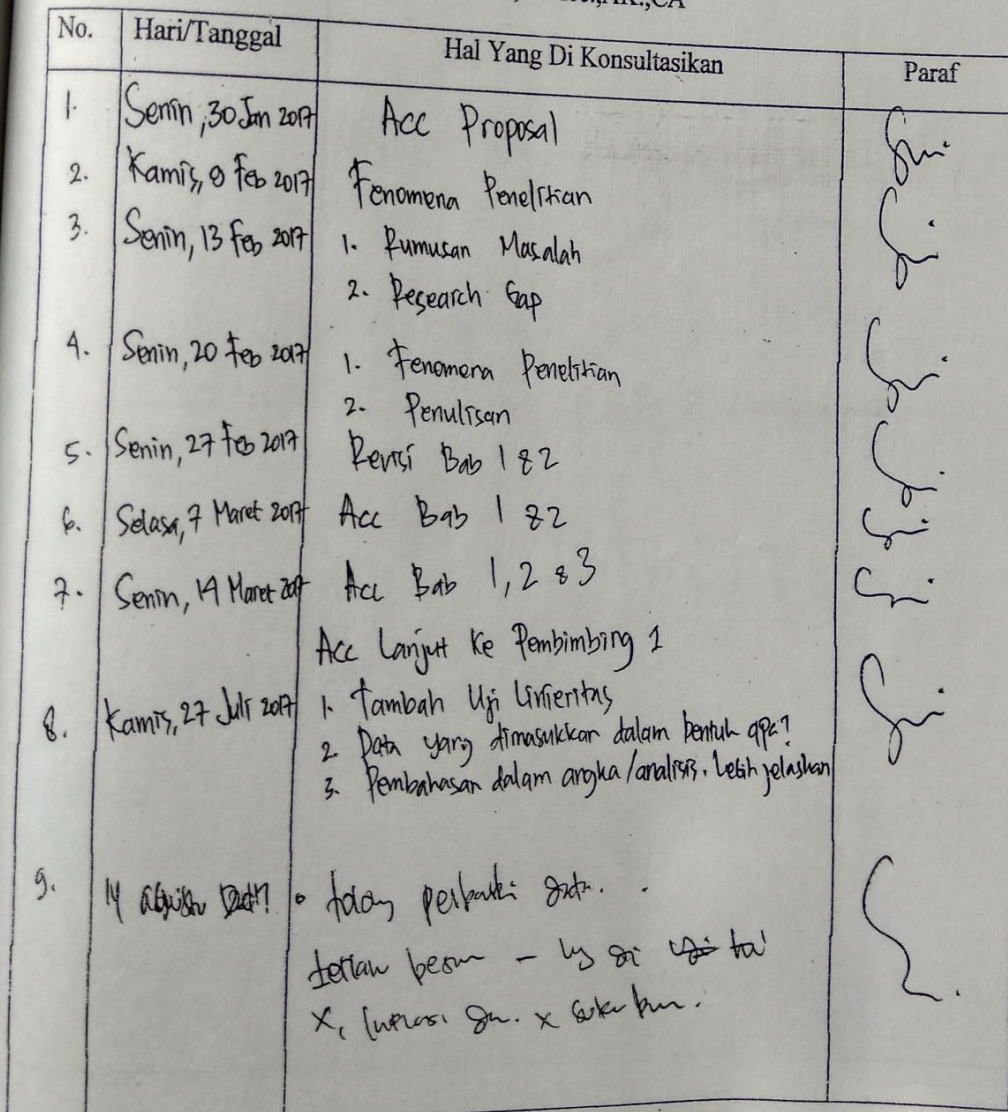 No. Hari/Tanggal Hal Yang Di Konsultasikan Paraf
1. Senin, 30 Jan 2017 Acc Proposal
2. Kamis, 9 Feb 2017 Fenomena Penelitian
3. Senin, 13 Feb 2017 1. Rumusan Masalah
2. Research Gap
4. Senin, 20 Feb 2017 1. Fenomena Penelitian
2. Penulisan
5. Senin, 27 Feb 2017 Revisi Bab 1 & 2
6. Selasa, 7 Maret 2017 Acc Bab 1 & 2
7. Senin, 14 Maret 2017 Acc Bab 1, 2 & 3
Acc Lanjut Ke Pembimbing 1
8. Kamis, 27 Juli 2017 1. Tambah Uji Linieritas
2. Data yang dimasukkan dalam bentuk apa?
3. Pembahasan dalam angka/analisis. Lebih jelaskan
9. 14 perbaiki data.